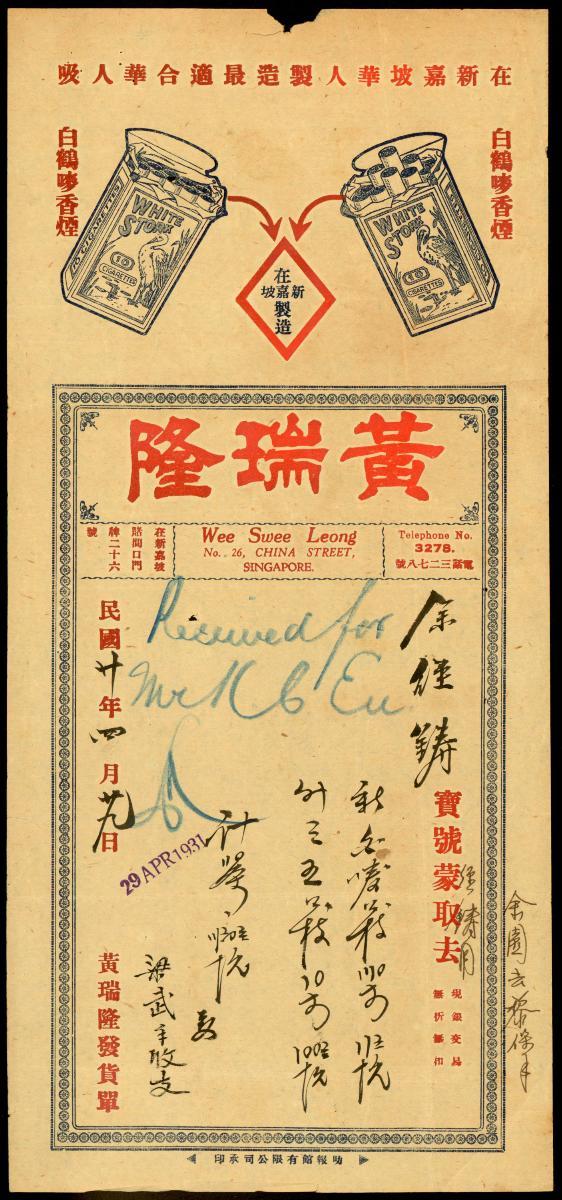 在新嘉坡華人製造最適合華人吸
白鶴嘜香煙
白鶴嘜香煙
WHITE STORK
10
CIGARETTES
WHITE STORK
10
CIGARETTES
10 CIGARETTES
在新嘉坡製造
黃瑞隆
Telephone No.
3278.
電話三二七八號
Wee Swee Leong
No. 26, CHINA STREET,
SINGAPORE.
在新嘉坡
賭間口門
牌二十六
號
Received for
Mr K C Eu
余經鑄
寶號蒙取去
現銀交易
無折無扣
計單
29 APR 1931
民國廿年四月廿九日
黃瑞隆發貨單
叻報館有限公司承印